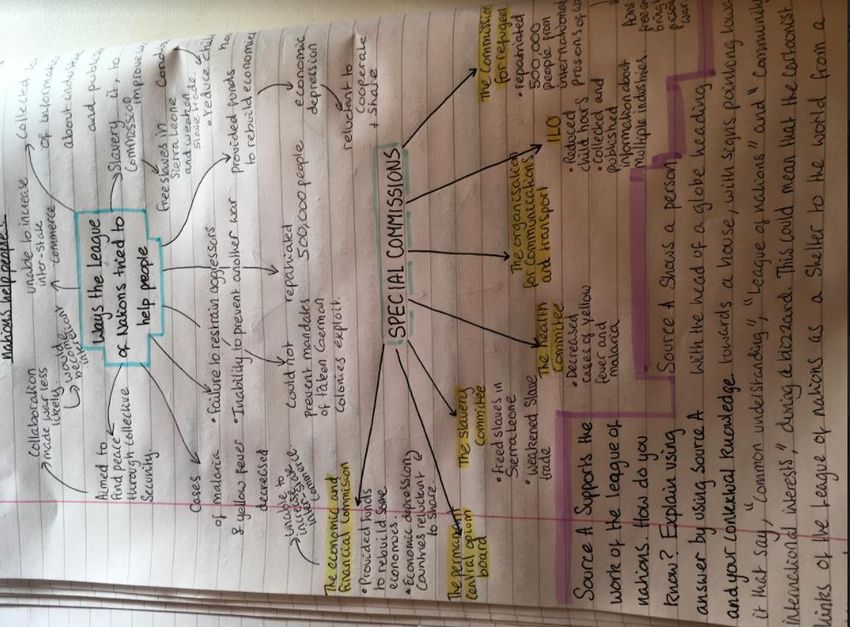 nations help people
Ways the League
of Nations tried to
help people
Collaboration
made war less
likely
would
unable to increase
inter-state
commerce
Collected
of informat
and publi
Slavery
Commission
it, to
improve
Free slaves in
Sierra Leone
and weaken
slave trade
reduce chil
provided funds
to rebuild economie
economic
depression
reluctant to
cooperate
+ share
Aimed to
find peace
through collective
security
Cases
of malaria
& yellow fever
decreased
• Failure to restrain aggressors
• Inability to prevent another war
Could not
Prevent mandates
of taken German
colonies exploit
repatriated
500,000 people
unable to
increase
inter-state
comm
SPECIAL COMMISSIONS
The economic and
financial commision
• Provided funds
to rebuild some
economies.
• Economic depression,
Countries reluctant
to share
The permanent
central opium
board
The slavery
committee
• Freed slaves in
Sierra Leone
• Weakened Slave
trade
The health
Committee
• Decreased
cases of yellow
fever and
malaria
The organisation
for communications
and transport
ILO
• Reduced
child hours
• Collected and
published
information about
multiple industries
The Commission
for refugee
• repatriated
500,000
people from
international
Source A Supports the
work of the League of
nations. How do you
know? Explain using
answer by using source A
and your contextual knowledge.
Source A Shows a person,
with the head of a globe heading
towards a house, with signs pointing towa
it that say, "Common understanding", "League of nations" and "Community
international interests," during a bizzard. This could mean that the cartoonist
thinks of the League of nations as a Shelter to the world from a